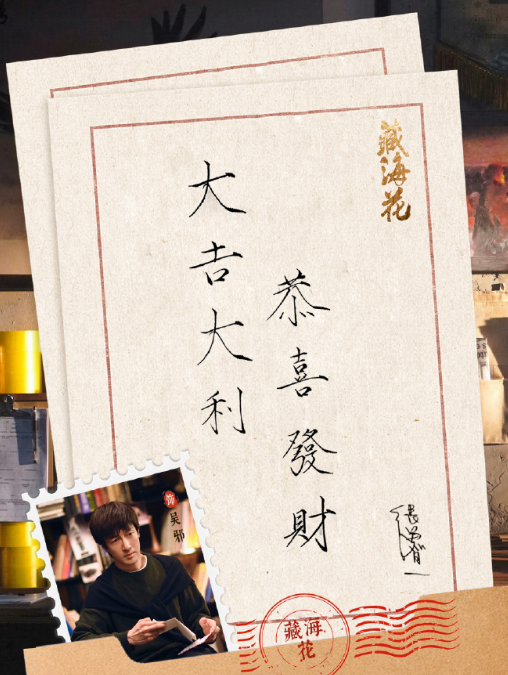 藏海花
恭喜發財
大吉大利
饰
吴邪
藏海花